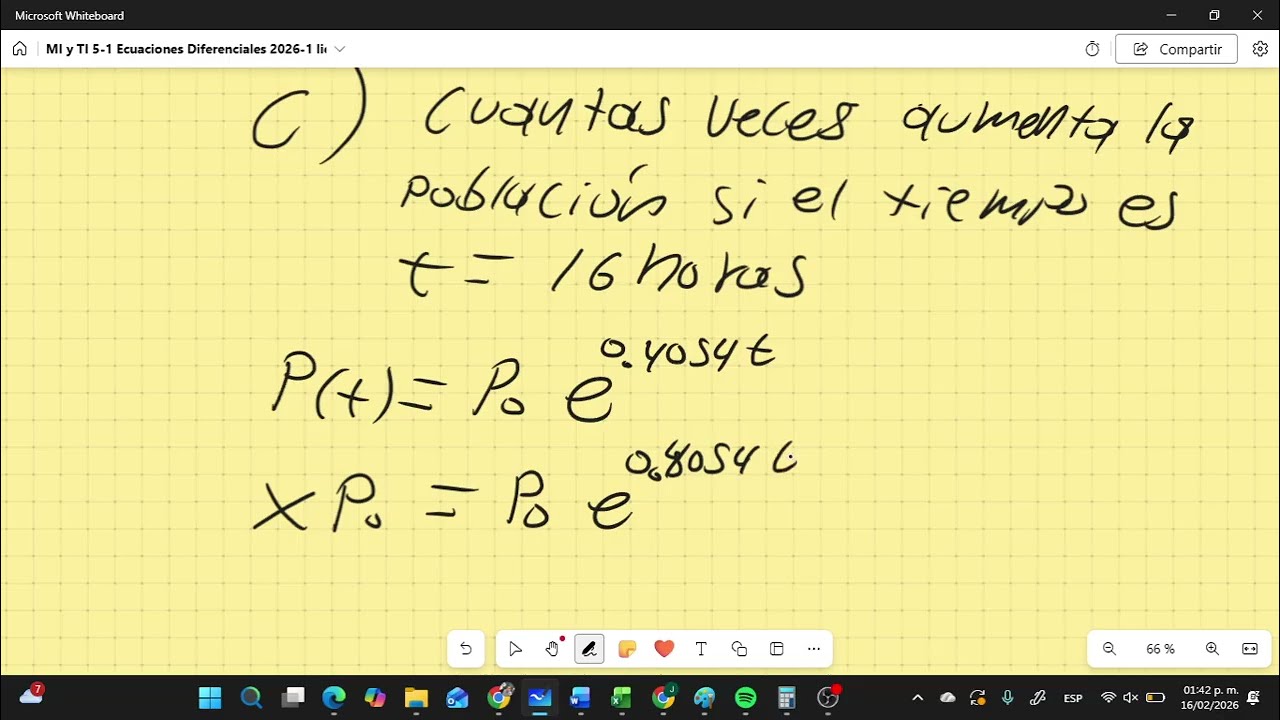 Microsoft Whiteboard
MI y TI 5-1 Ecuaciones Diferenciales 2026-1 li
Compartir
C) Cuantas veces aumenta la
población si el tiempo es
t = 16 horas
P(t) = P₀ e^0.4054t
x P₀ = P₀ e^0.8054 t
66 %
7
ESP
01:42 p. m.
16/02/2026